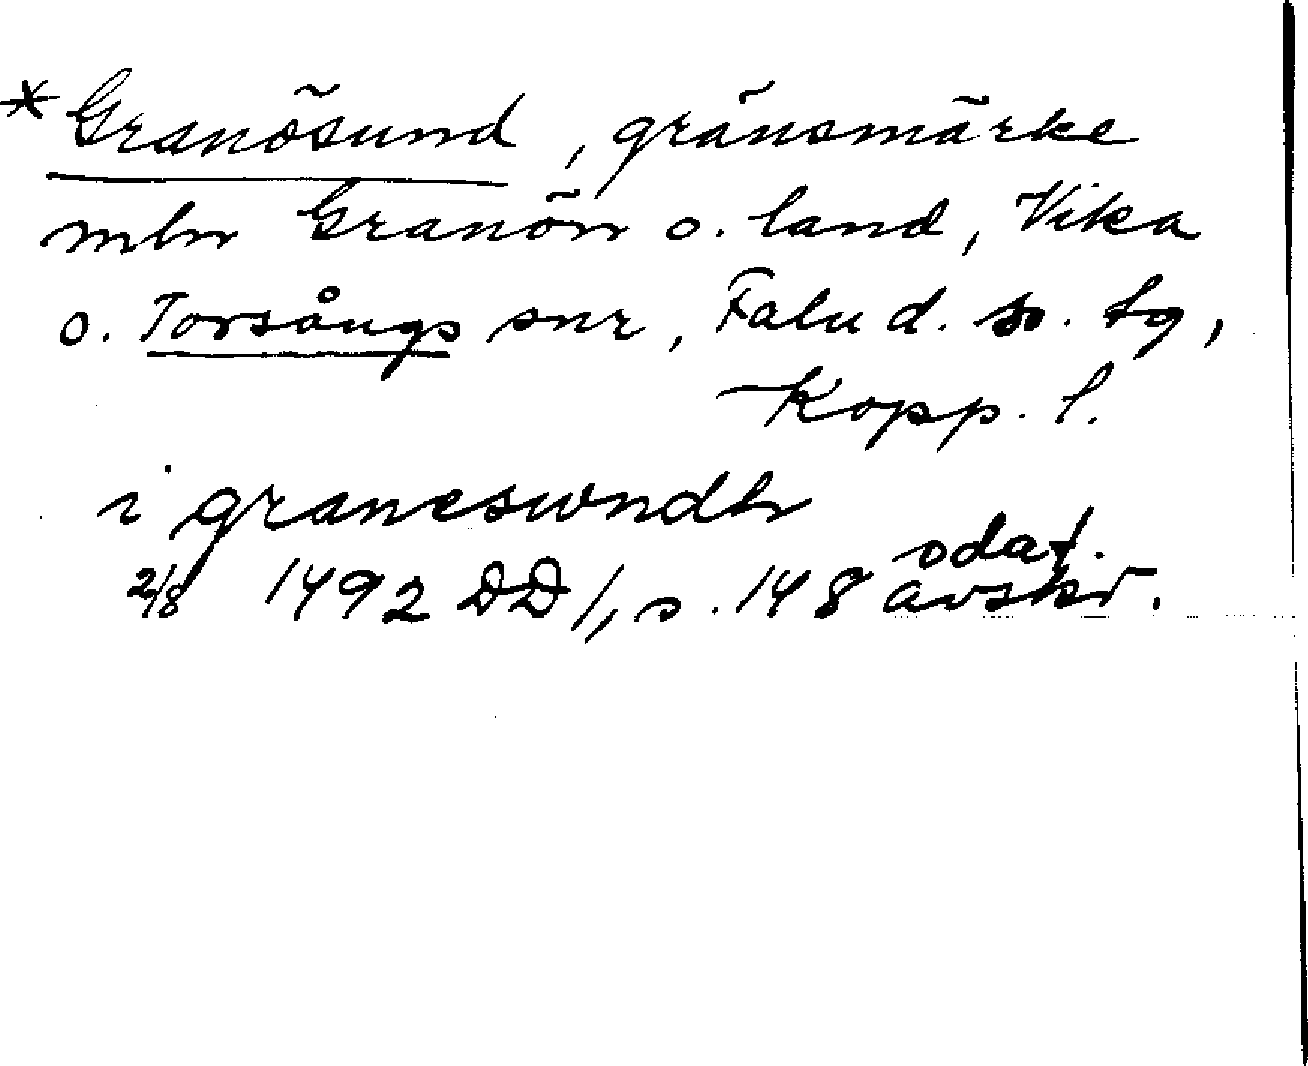 * Granösund, gränsmärke
mln Granön o. land, Vika
o. Torsångs snr, Falu d. so. tg,
Kopp. l.
i graneswndh
odat.
2/8 1492 DD 1, s. 148 avskr.